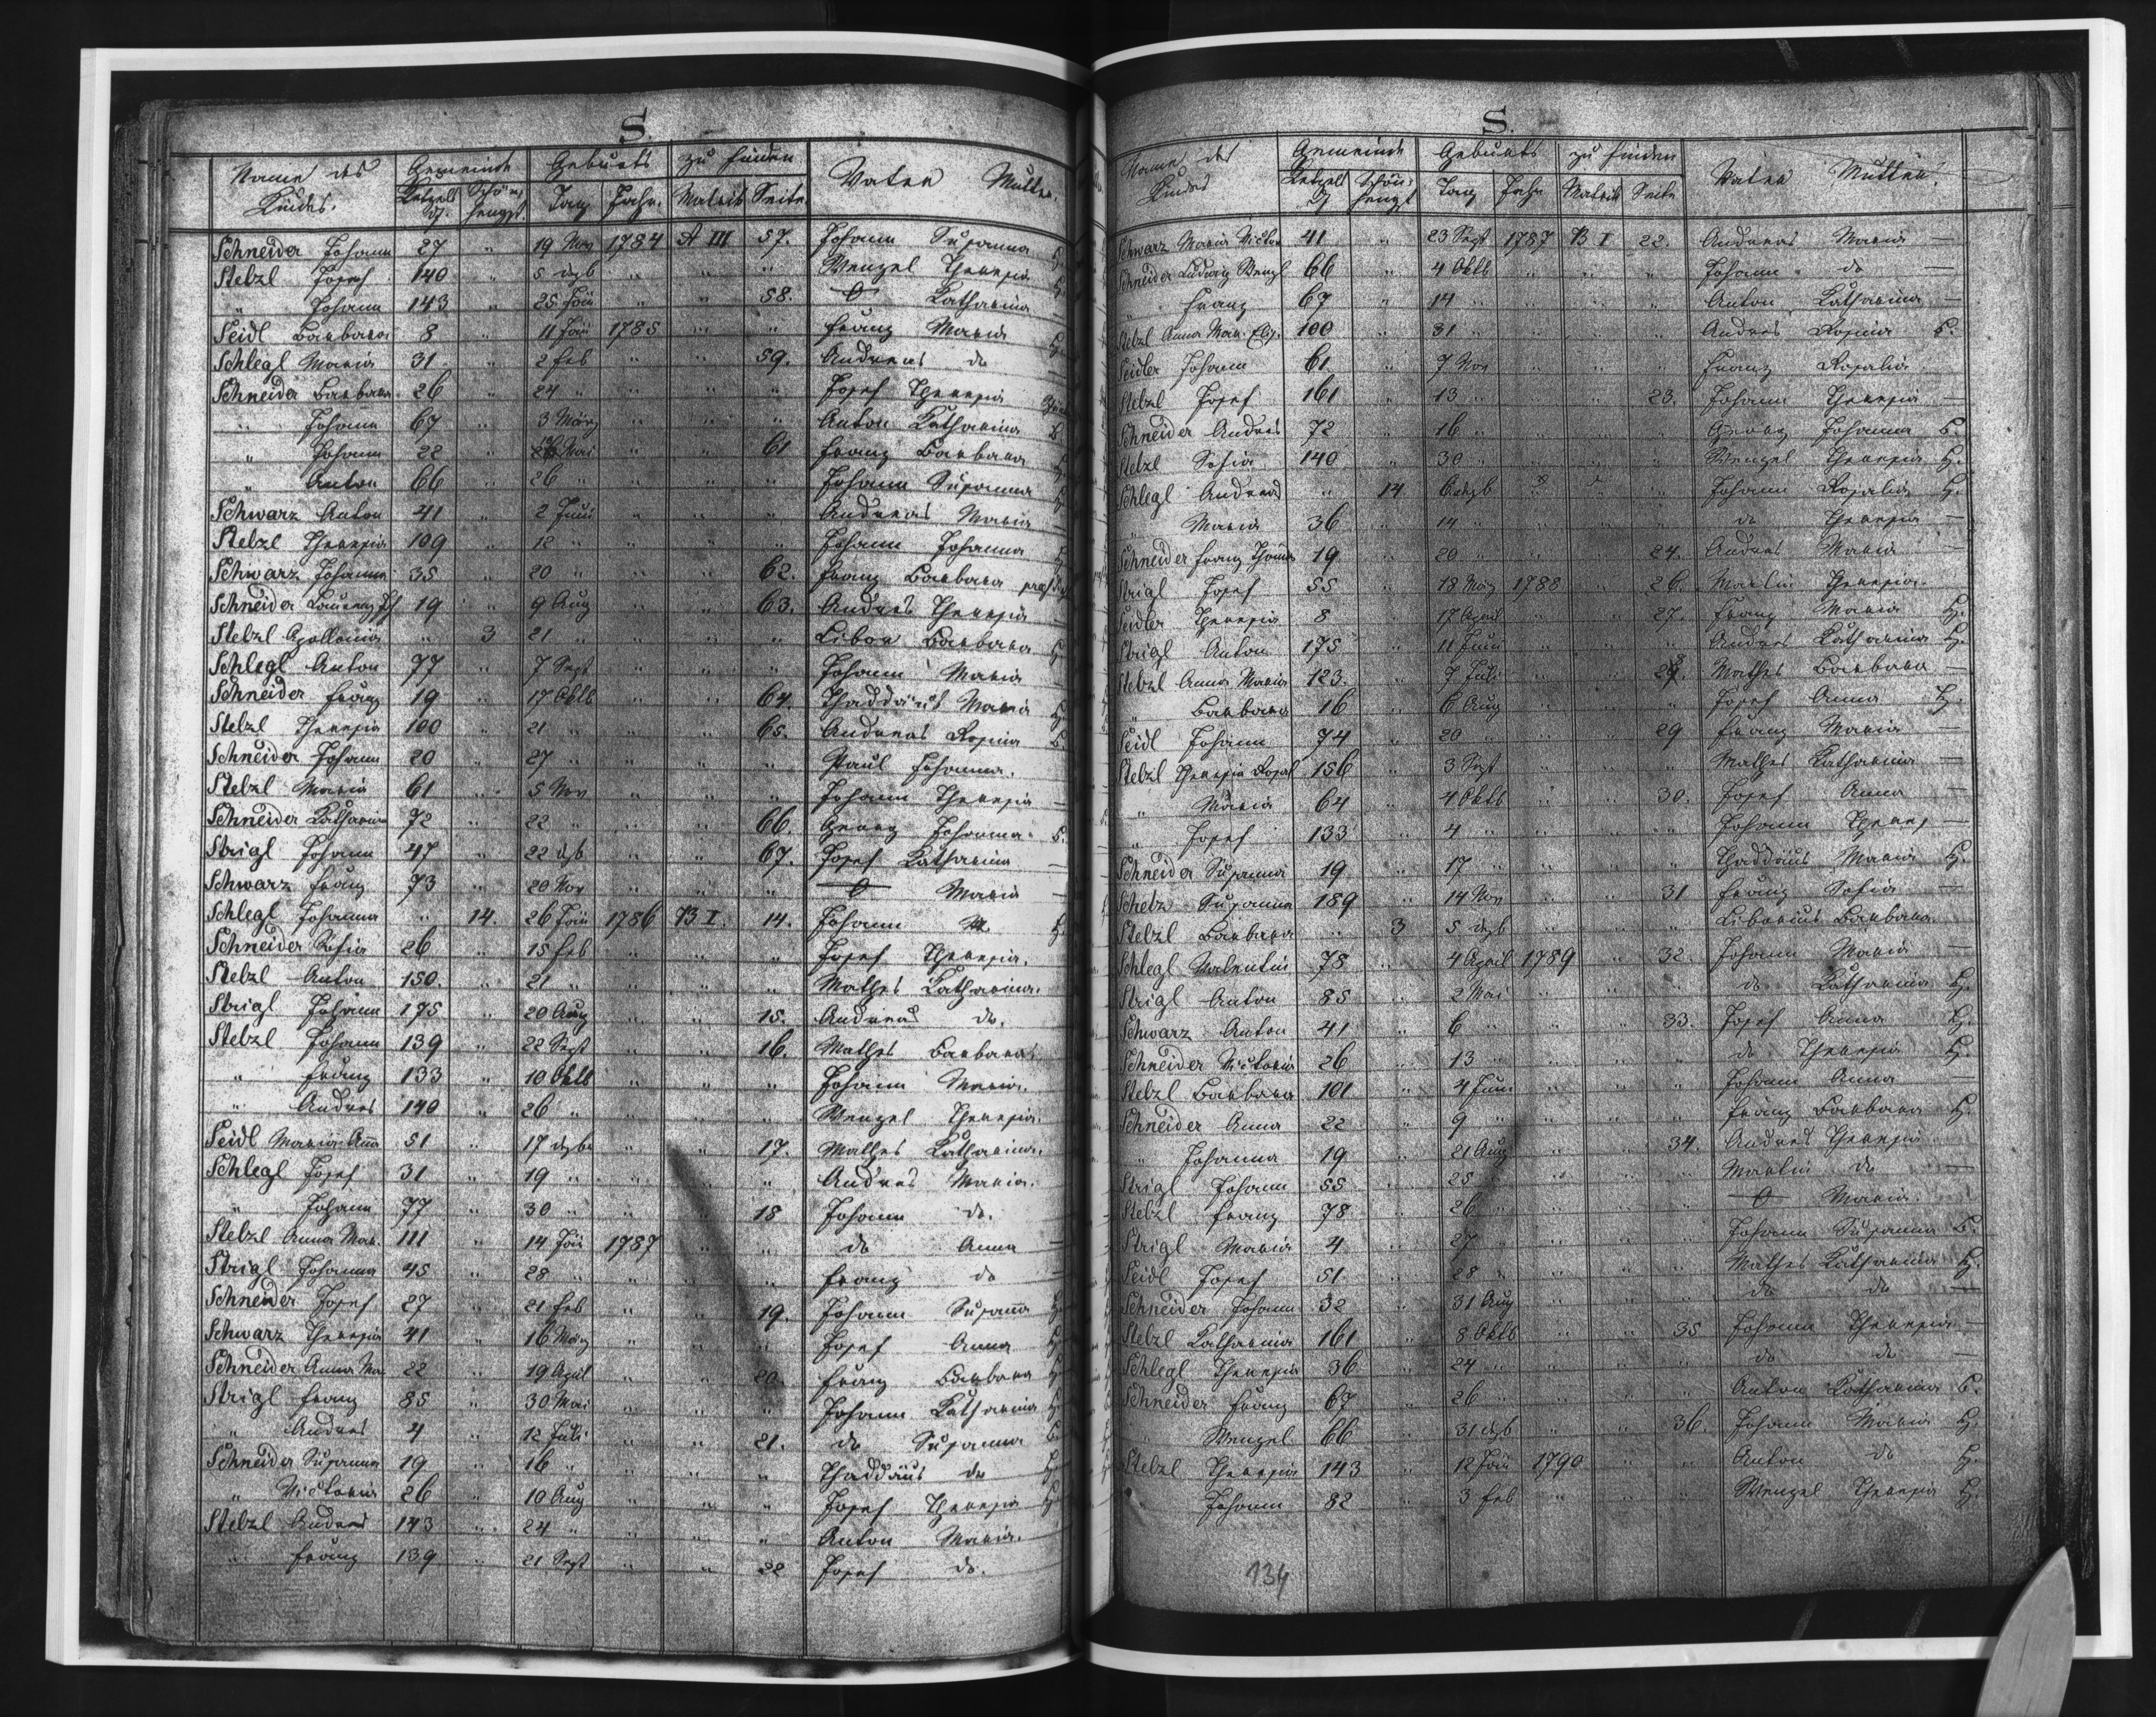 S.
Name des Kindes. Gemeinde Geburts zu finden Vater Mutter.
Ketzelsd. Schönhengst. Tag Jahr. Matrik Seite
Schneider Johann 27 " 19 Nov 1784 A III 57. Johann Susanna
Stelzl Josef 140 " 5 dezb " " " Wenzel Theresia
" Johann 143 " 25 Jän " " 58. 0 Katharina
Seidl Barbara 8 " 11 Jän 1785 " " Franz Maria
Schlegl Maria 31 " 2 Feb " " 59. Andreas do
Schneider Barbara 26 " 24 " " " " Josef Theresia
" Johann 67 " 3 März " " " Anton Katharina
" Johann 22 " Mai " " 61 Franz Barbara
" Anton 66 " 26 " " " " Johann Susanna
Schwarz Anton 41 " 2 Juni " " " Andreas Maria
Stelzl Theresia 109 " 12 " " " " Johann Johanna
Schwarz Johanna 35 " 20 " " " 62. Franz Barbara
Schneider Laurenz 19 " 9 Aug " " 63. Andres Theresia
Stelzl Apollonia " 3 21 " " " " Libor Barbara
Schlegl Anton 77 " 7 Sept " " " Johann Maria
Schneider Franz 19 " 17 Oktb " " 64. Thaddäus Maria
Stelzl Theresia 100 " 21 " " " 65. Andreas Rosina
Schneider Johann 20 " 27 " " " " Paul Johanna.
Stelzl Maria 61 " 5 Nov " " " Johann Theresia
Schneider Katharina 72 " 22 " " " 66. Georg Johanna
Strigl Johann 47 " 22 dzb " " 67. Josef Katharina
Schwarz Franz 73 " 20 Nov " " " 0 Maria
Schlegl Johanna " 14. 26 Jän 1786 B I. 14. Johann
Schneider Sofia 26 " 15 Feb " " " Josef Theresia.
Stelzl Anton 150. " 21 " " " " Mathes Katharina.
Strigl Johann 175 " 20 Aug " " 15. Andreas do.
Stelzl Johann 139 " 22 Sept " " 16. Mathes Barbara
" Franz 133 " 10 Oktb " " " Johann Maria.
" Andres 140 " 26 " " " " Wenzel Theresia.
Seidl Maria Anna 51 " 17 dezbr " " 17. Mathes Katharina.
Schlegl Josef 31 " 19 " " " " Andres Maria.
" Johann 77 " 30 " " " 18 Johann do.
Stelzl Anna Mar. 111 " 14 Jän 1787 " " do Anna
Strigl Johanna 45 " 28 " " " " Franz do
Schneider Josef 27 " 21 Feb " " 19. Johann Susanna
Schwarz Theresia 41 " 16 März " " " Josef Anna
Schneider Anna Ma 22 " 19 April " " 20. Franz Barbara
Strigl Franz 85 " 30 Mai " " " Johann Katharina
" Andres 4 " 12 Juli " " 21. do Susanna
Schneider Susanna 19 " 16 " " " " Thaddäus do
" Victoria 26 " 10 Aug " " " Josef Theresia
Stelzl Andres 143 " 24 " " " " Anton Maria.
" Franz 139 " 21 Sept " " 22 Josef do.
S.
Name des Kindes Gemeinde Geburts zu finden Vater Mutter.
Ketzelsd Schönhengst Tag Jahr Matrik Seite
Schwarz Maria Victor 41 " 23 Sept 1787 B I 22. Andreas Maria —
Schneider Ludwig Wenzl 66 " 4 Oktb " " " Johann do —
" Franz 67 " 14 " " " " Anton Katharina —
Stelzl Anna Mar. Elis. 100 " 31 " " " " Andres Rosina
Seidler Johann 61 " 7 Nov " " " Franz Rosalia
Stelzl Josef 161 " 13 " " " 23. Johann Theresia —
Schneider Andres 72 " 16 " " " " Georg Johanna
Stelzl Sofia 140 " 30 " " " " Wenzel Theresia H.
Schlegl Andreas " 14 6 dezb " " " Johann Rosalia H.
" Maria 36 " 14 " " " " do Theresia —
Schneider Franz Thomas 19 " 20 " " " 24. Andres Maria —
Strigl Josef 55 " 18 März 1788 " 26. Martin Theresia.
Seidler Theresia 8 " 17 April " " 27. Franz Maria H.
Strigl Anton 175 " 11 Juni " " " Andres Katharina H.
Stelzl Anna Maria 123. " 7 Juli " " 28. Mathes Barbara —
" Barbara 16 " 6 Aug " " " Josef Anna H.
Seidl Johann 74 " 20 " " " 29 Franz Maria —
Stelzl Theresia Rosal 156 " 3 Sept " " " Mathes Katharina —
" Maria 64 " 4 Oktb " " 30. Josef Anna —
" Josef 133 " 4 " " " " Johann Theres —
Schneider Susanna 19 " 17 " " " " Thaddäus Maria H.
Schelz Susanna 189 " 14 Nov " " 31 Franz Sofia —
Stelzl Barbara " 3 5 dezb " " " Liborius Barbara.
Schlegl Valentin 78 " 4 April 1789 " 32. Johann Maria —
Strigl Anton 85 " 2 Mai " " " do Katharina H.
Schwarz Anton 41 " 6 " " " 33. Josef Anna H.
Schneider Victoria 26 " 13 " " " " do Theresia H.
Stelzl Barbara 101 " 4 Juni " " " Johann Anna —
Schneider Anna 22 " 9 " " " " Franz Barbara H.
" Johanna 19 " 21 Aug " " 34. Andres Theresia
Strigl Johann 55 " 25 " " " " Martin do —
Stelzl Franz 78 " 26 " " " " 0 Maria.
Strigl Maria 4 " 27 " " " " Johann Susanna
Seidl Josef 51 " 28 " " " " Mathes Katharina H.
Schneider Johann 32 " 31 Aug " " " do do —
Stelzl Katharina 161 " 8 Oktb " " 35 Johann Theresia —
Schlegl Theresia 36 " 24 " " " " do do —
Schneider Franz 67 " 26 " " " " Anton Katharina
" Wenzel 66 " 31 dezb " " 36. Johann Maria H.
Stelzl Theresia 143 " 12 Jän 1790 " " Anton do H.
Johann 82 " 3 Feb " " " Wenzel Theresia H.
134